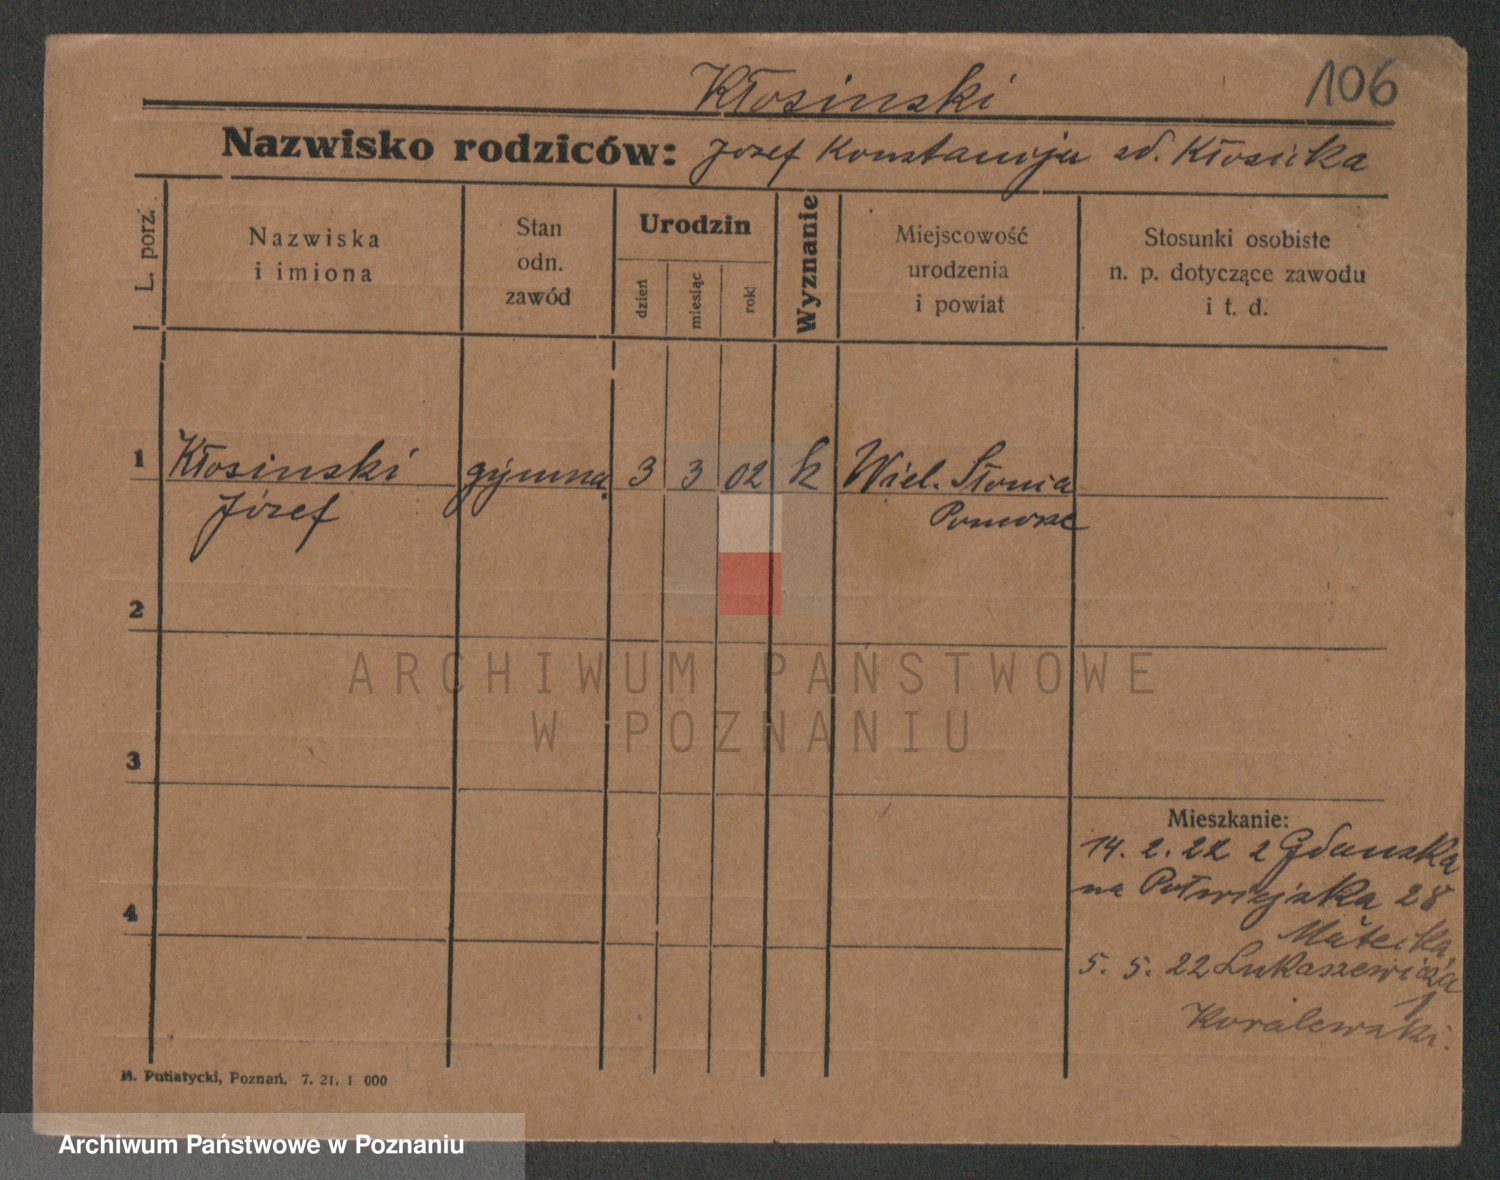 Kłosinski
106
Nazwisko rodziców: Józef Konstancja zd. Kłosicka
L. porz.
Nazwiska
i imiona
Stan
odn.
zawód
Urodzin
dzień
miesiąc
rok
Wyznanie
Miejscowość
urodzenia
i powiat
Stosunki osobiste
n. p. dotyczące zawodu
i t. d.
1 Kłosinski gymna. 3 3 02 k Wiel. Słonia
Józef Pomorze
2
3
4
ARCHIWUM PAŃSTWOWE
W POZNANIU
Mieszkanie:
14. 2. 22 z Gdanska
na Półwiejska 28
Matecka
5. 5. 22 Lukaszewicza
1
Koralewski.
M. Putiatycki, Poznań. 7. 21. 1 000
Archiwum Państwowe w Poznaniu